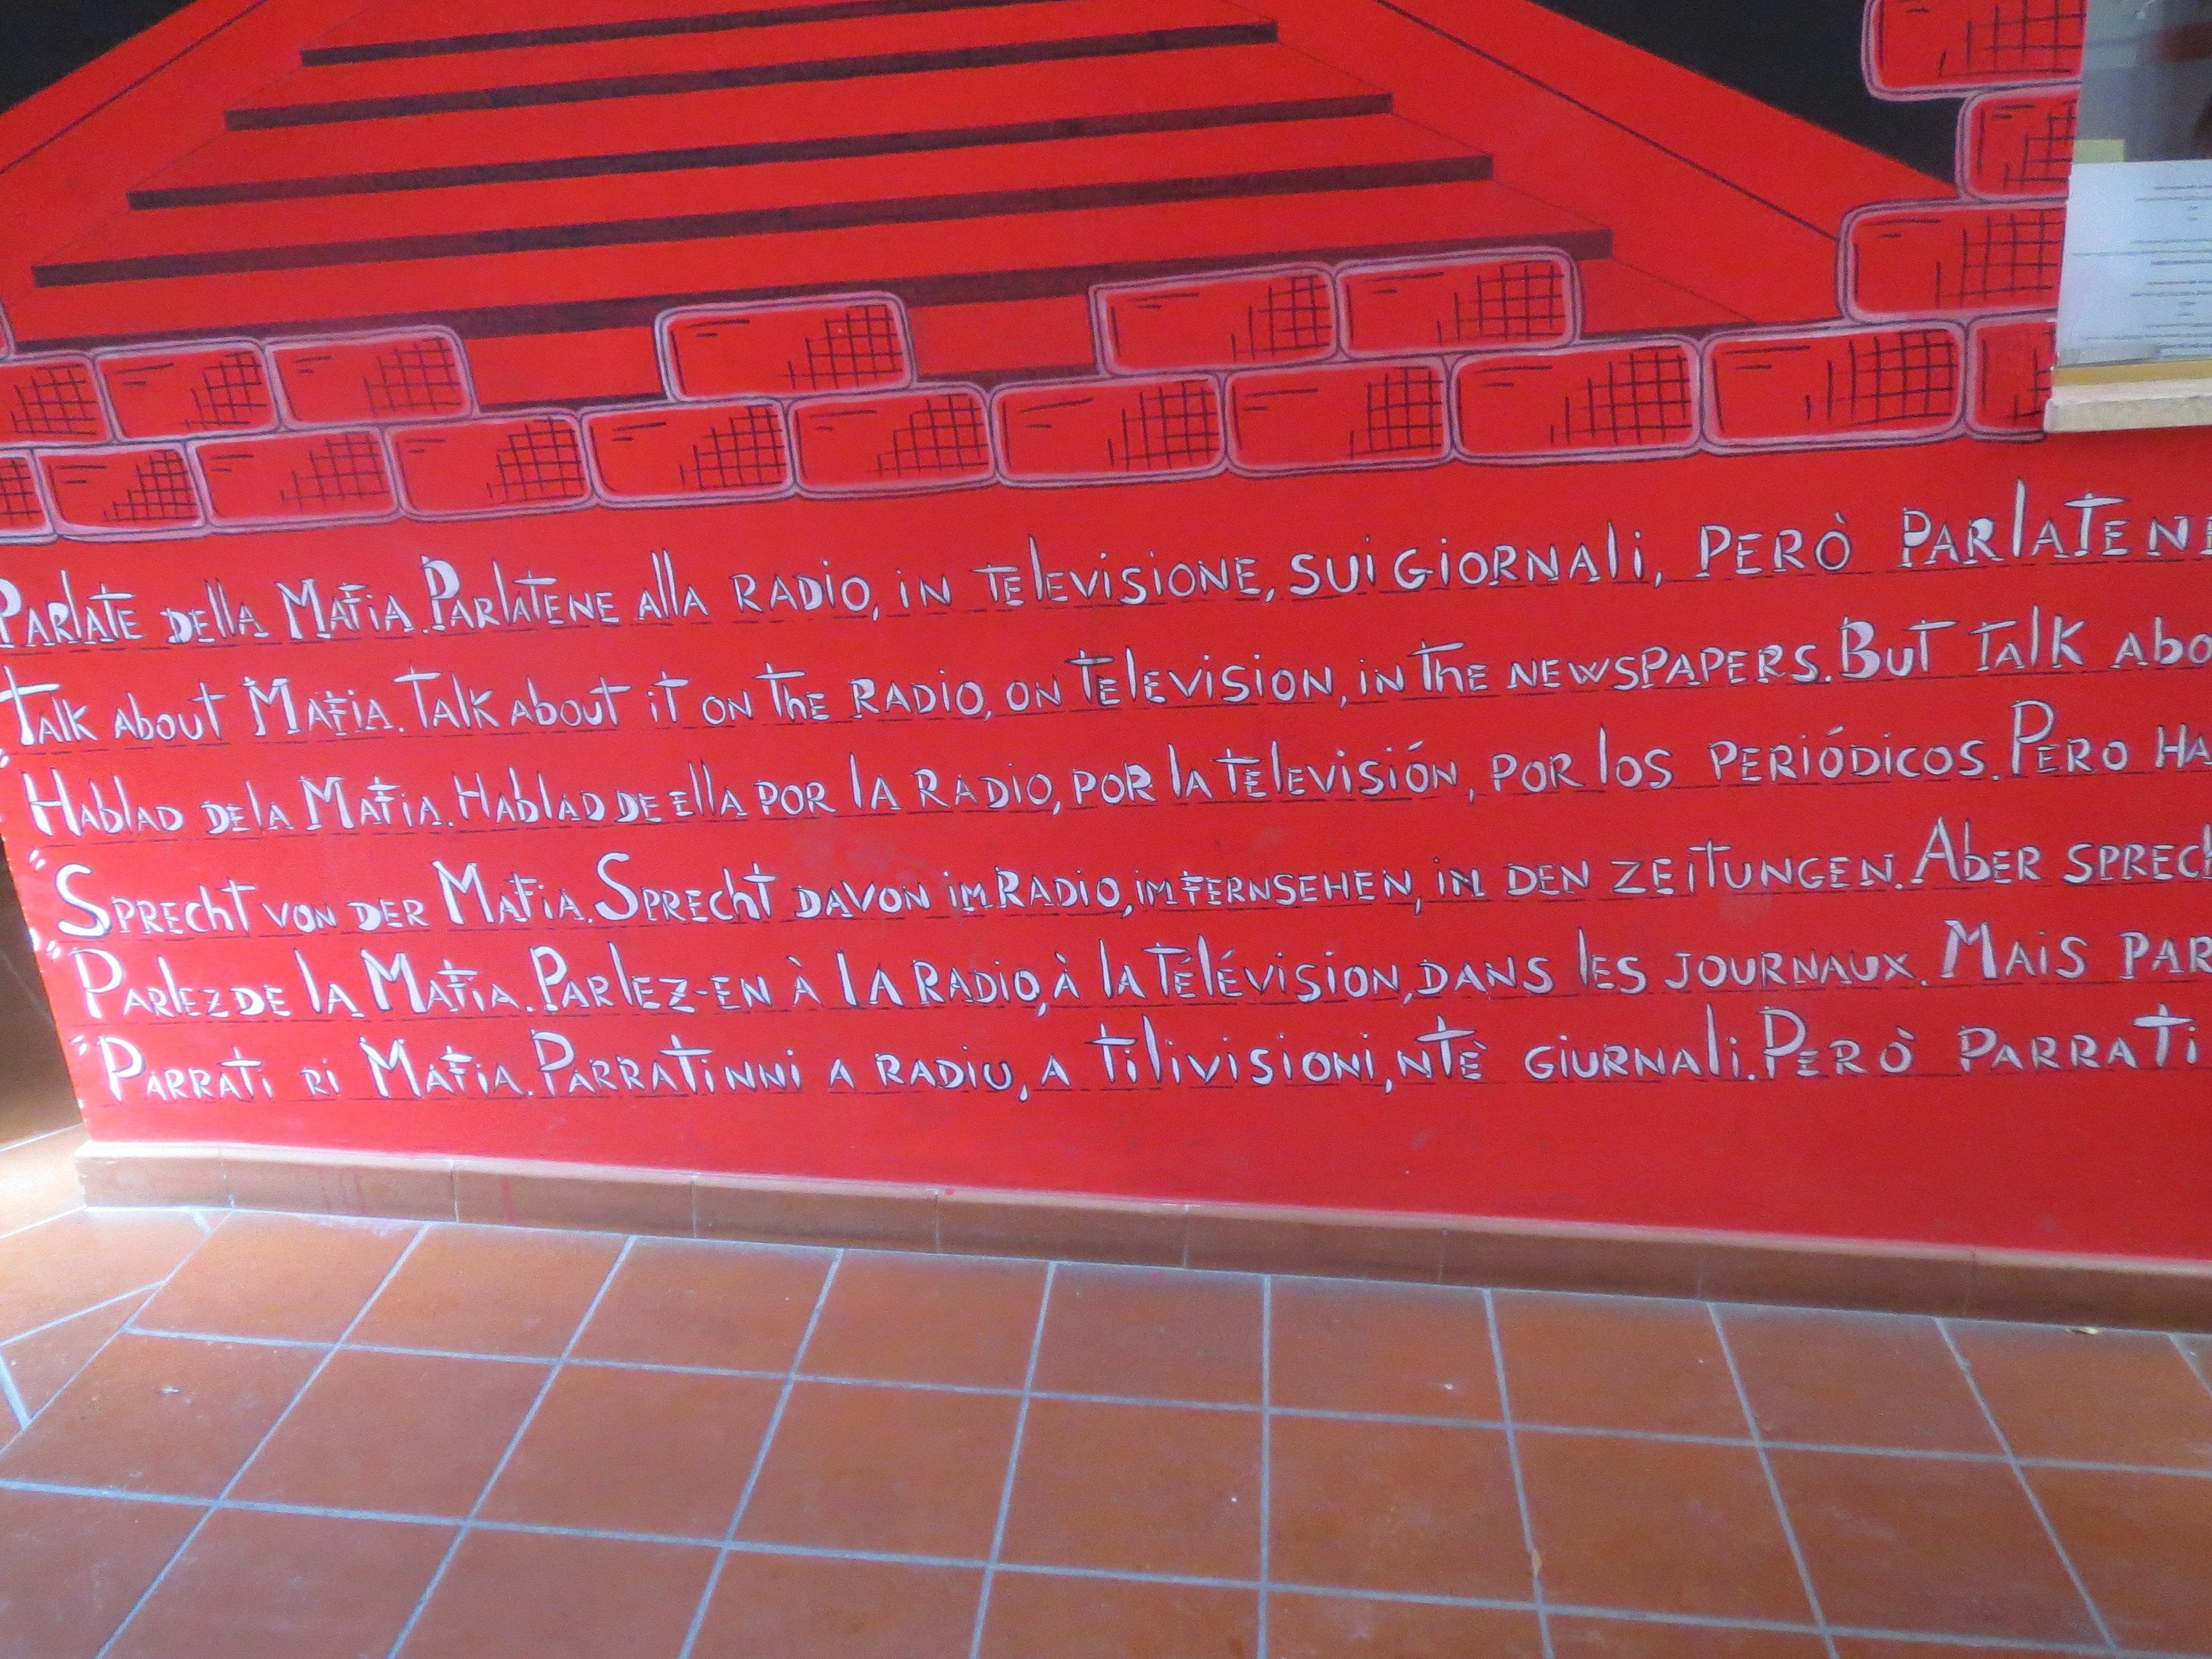 Parlate della Mafia. Parlatene alla radio, in televisione, sui giornali, però parlatene
Talk about Mafia. Talk about it on the radio, on television, in the newspapers. But talk abo
"Hablad de la Mafia. Hablad de ella por la radio, por la televisión, por los periódicos. Pero ha
"Sprecht von der Mafia. Sprecht davon im Radio, im Fernsehen, in den Zeitungen. Aber sprech
"Parlez de la Mafia. Parlez-en à la radio, à la télévision, dans les journaux. Mais par
"Parrati ri Mafia. Parratinni a radiu, a tilivisioni, ntè giurnali. Però parrati